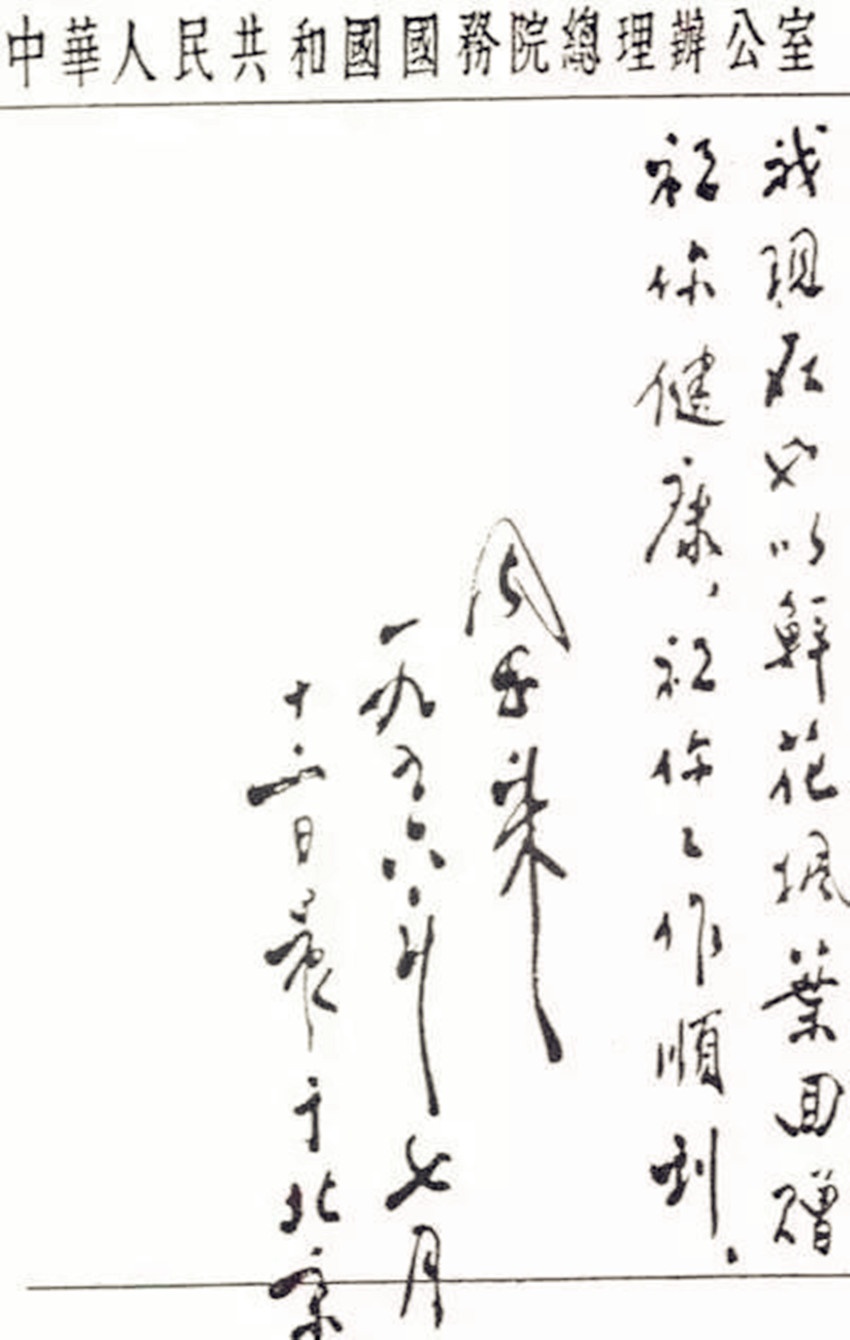 中華人民共和國國務院總理辦公室
我現在也以鮮花楓葉回贈
祝你健康,祝你工作順利.
周恩来
一九五六年七月
十二日晨于北京